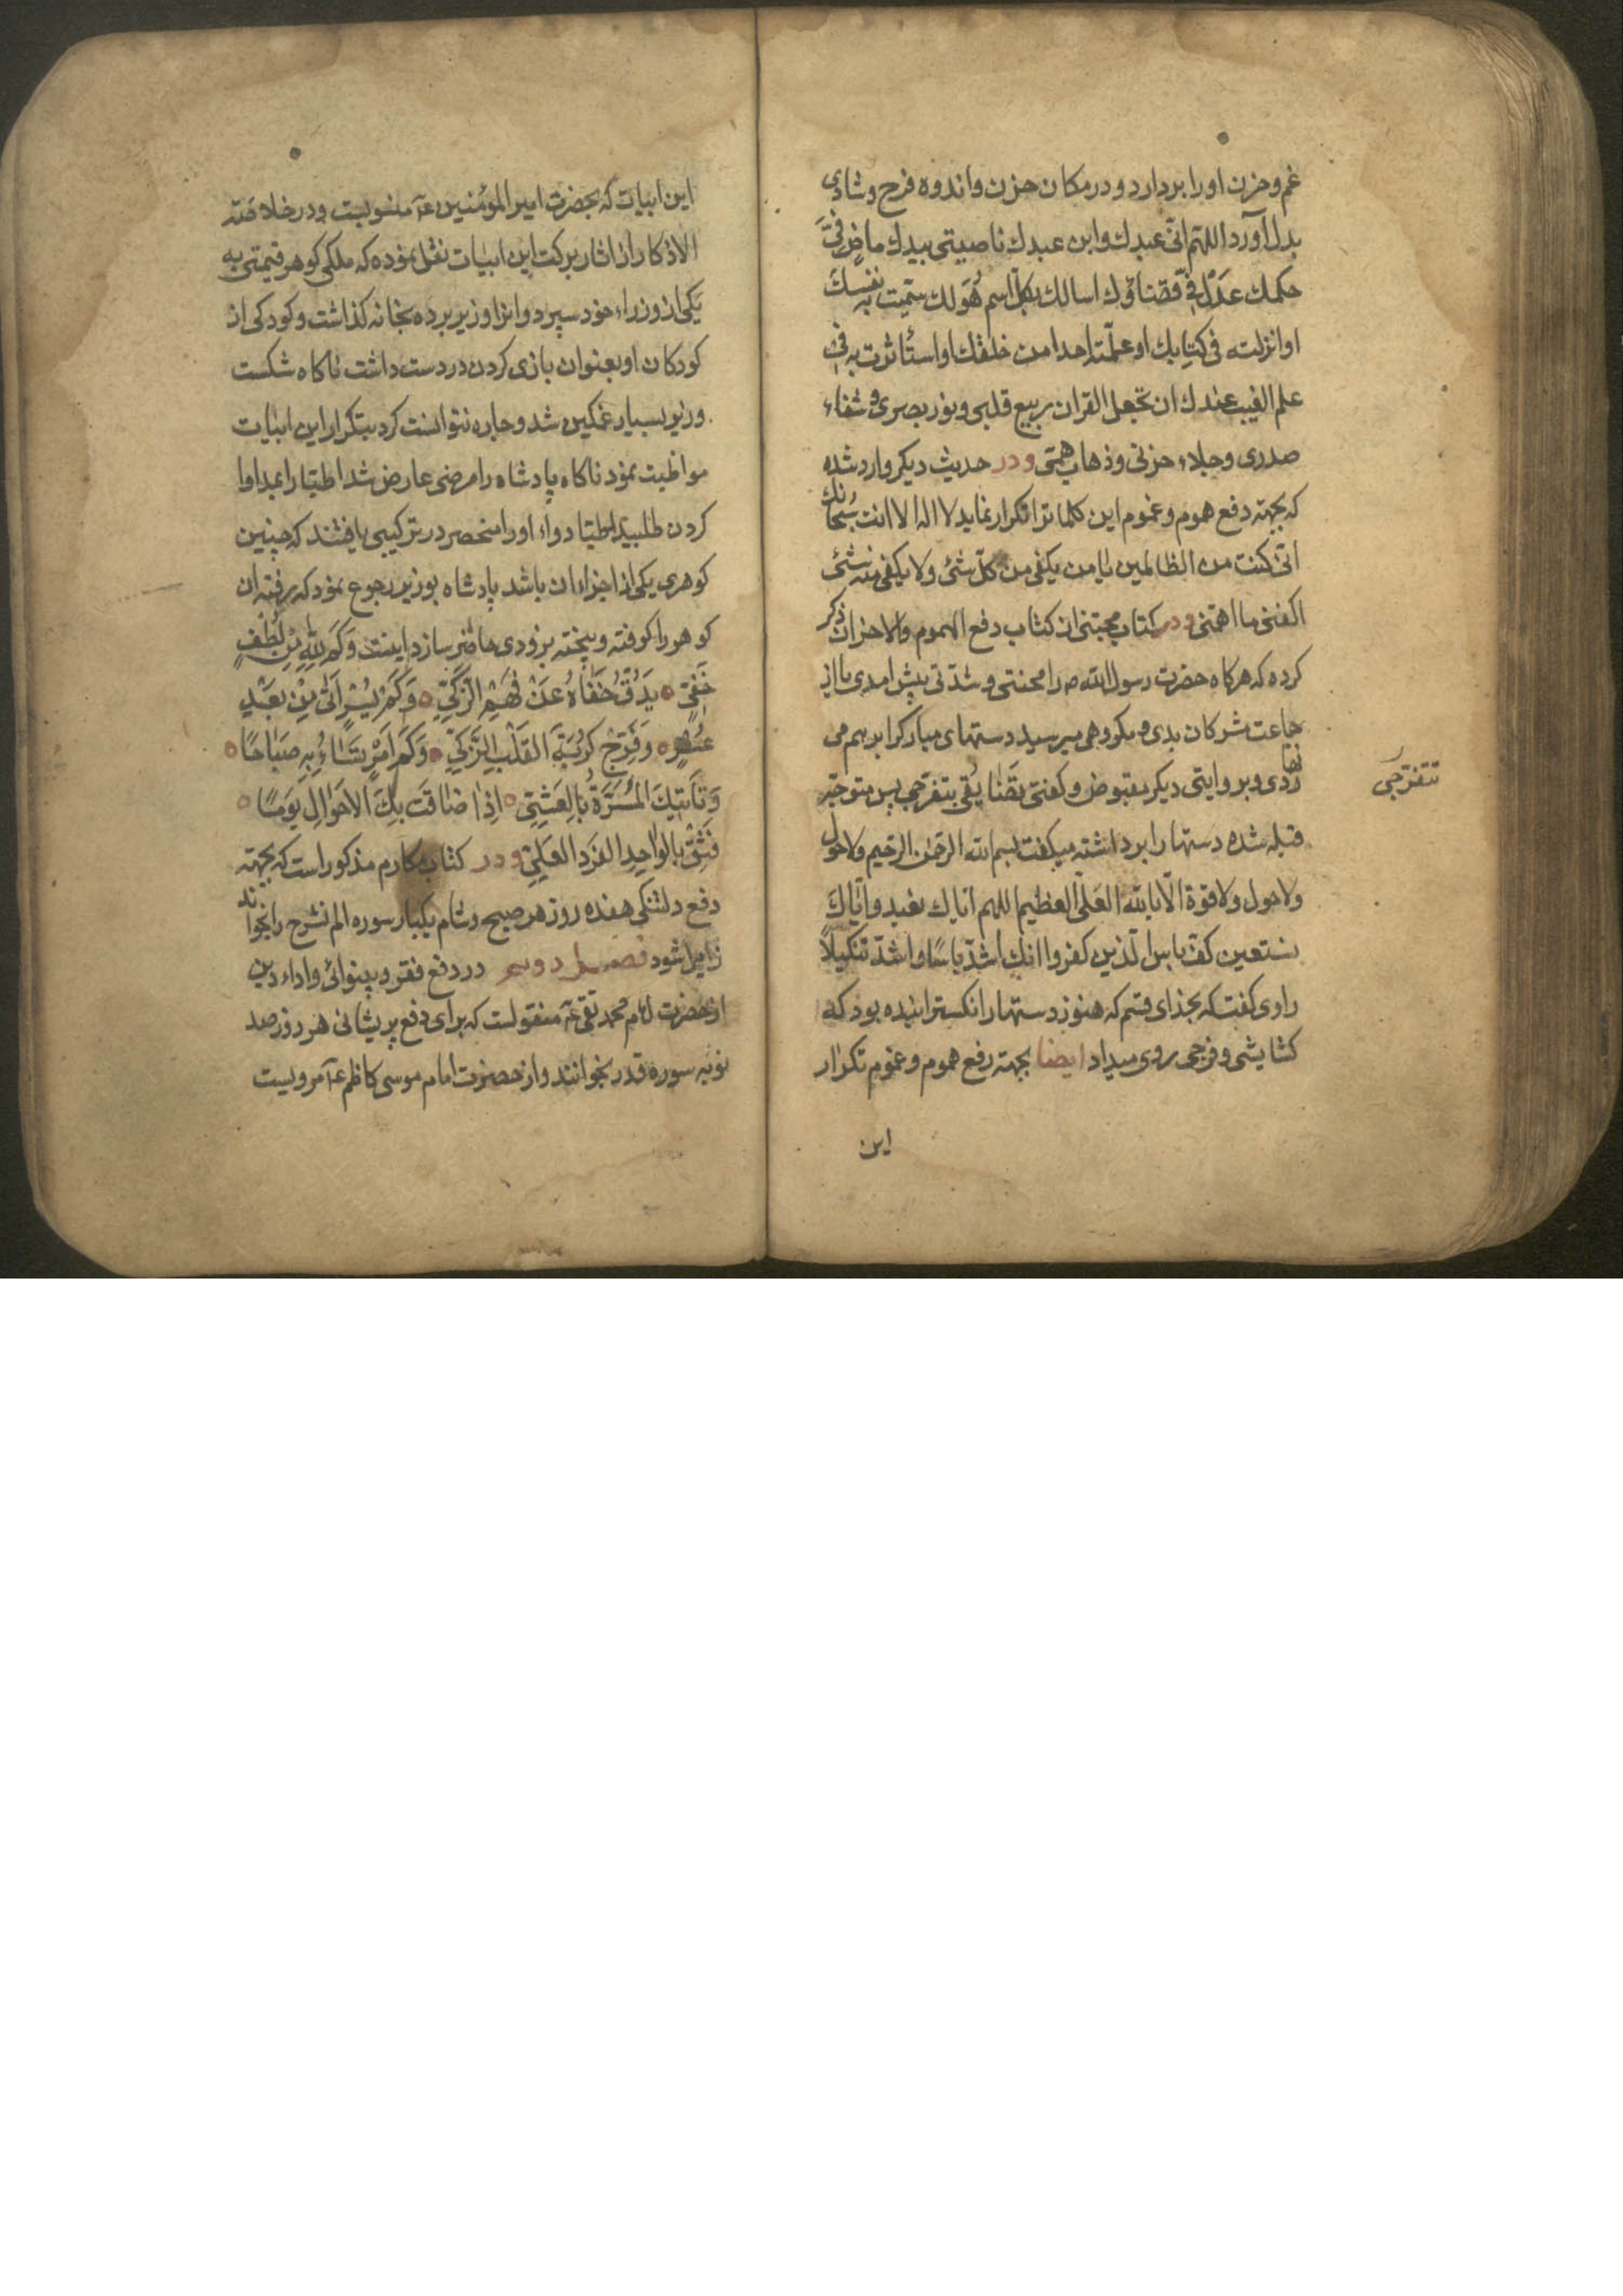 غم و حزن او را بردارد و در مکان حزن و اندوه فرح و شادی
بدل آورد اللهم انّی عبدك وابن عبدك ناصیتی بیدك ماضٍ فیَّ
حکمك عدلٌ فیّ قضاؤك اسالك بکلّ اسم هُوَ لك سمّیت به نفسك
او انزلته فی کتابك او علّمته احدا من خلقك او استأثرت به فی
علم الغیب عندك ان تجعل القران ربیع قلبی و نور بصری و شفاء
صدری وجلاء حزنی وذهاب همّی و در حدیث دیکر وارد شده
که بجهته دفع هموم و غموم این کلماترا تکرار نماید لا اله الا انت سُبحانك
انّی کنت من الظالمین یا من یکفی من کلّ شئ ولا یکفی منه شئ
اکفنی ما اهمّنی و در کتاب مجتنی از کتاب دفع الهموم والاحزان ذکر
کرده که هرکاه حضرت رسول الله ص را محنتی و شدّتی پیش امدی یا از
جماعت مشرکان بدی و مکروهی میرسید دستهای مبارکرا برهم می
زدی و بروایتی دیکر مقبوض و کفتی تضایقی تنفرّجی پس متوجّه
تتفرّجی
قبله شده دستها را برداشته میکفت بسم الله الرحمن الرحیم ولا حول
ولا حول ولا قوة الّا بالله العَلّی العظیم اللهم ایاك نعبد وایّاك
نستعین کفّ باس الّذین کفروا انك اشدّ باسًا واشدّ تنکیلًا
راوی کفت که بخدای قسم که هنوز دستها را نکسترانیده بود که
کشایشی و فرجی روی میداد ایضا بجهته رفع هموم و غموم تکرار
این
این ابیات که بحضرت امیر المؤمنین ع منسوبست و در خلاصته
الاذکار از اثار برکت این ابیات نقل نموده که ملکی کوهر قیمتی به
یکی از وزراء خود سپرد و انرا وزیر برده بخانه کذاشت و کودکی از
کودکان او بعنوان بازی کردن در دست داشت ناکاه شکست
وزیر بسیار غمکین شد و چاره نتوانست کرد بتکرار این ابیات
مواظبت نمود ناکاه پادشاه را مرضی عارض شد اطبّا را بمداوا
کردن طلبید اطبّا دواء او را منحصر در ترکیبی یافتند که چنین
کوهری یکی از اجزاء ان باشد پادشاه بوزیر رجوع نمود که رفته ان
کوهر را کوفته و بیخته بزودی حاضر سازد اینست وَکَم لِلّٰهِ مِن لُطفٍ
خَفِیّ یَدُقُّ خَفٰاهُ عَنْ فَهْمِ الزَّکِیِّ وَکَم یُسْرٍ اَتٰی مِن بَعْدِ
عُسْرٍ وَفَرَّجَ کُرْبَةَ القَلْبِ الزَّکِیِّ وَکَم اَمْرٍ تُسٰاءُ بِهِ صَبَاحًا
وَتَأتِیكَ المُسَرَّةُ بِالعَشِیِّ اِذٰا ضاقَت بِكَ الاَحوٰالِ یَومًا
فَثِقْ بِالوٰاحِدِ الفَرَدِ العَلِیِّ و در کتاب مکارم مذکور است که بجهته
دفع دلتنکی هفده روز هر صبح و شام یکبار سوره الم نشرح را بخوانند
زایل شود فصل دویم در دفع فقر و بینوائی و اداء دین
از حضرت امام محمد تقی ع منقولست که برای دفع پریشانی هر روز صد
نوبه سوره قدر بخوانند و از حضرت امام موسی کاظم ع مرویست